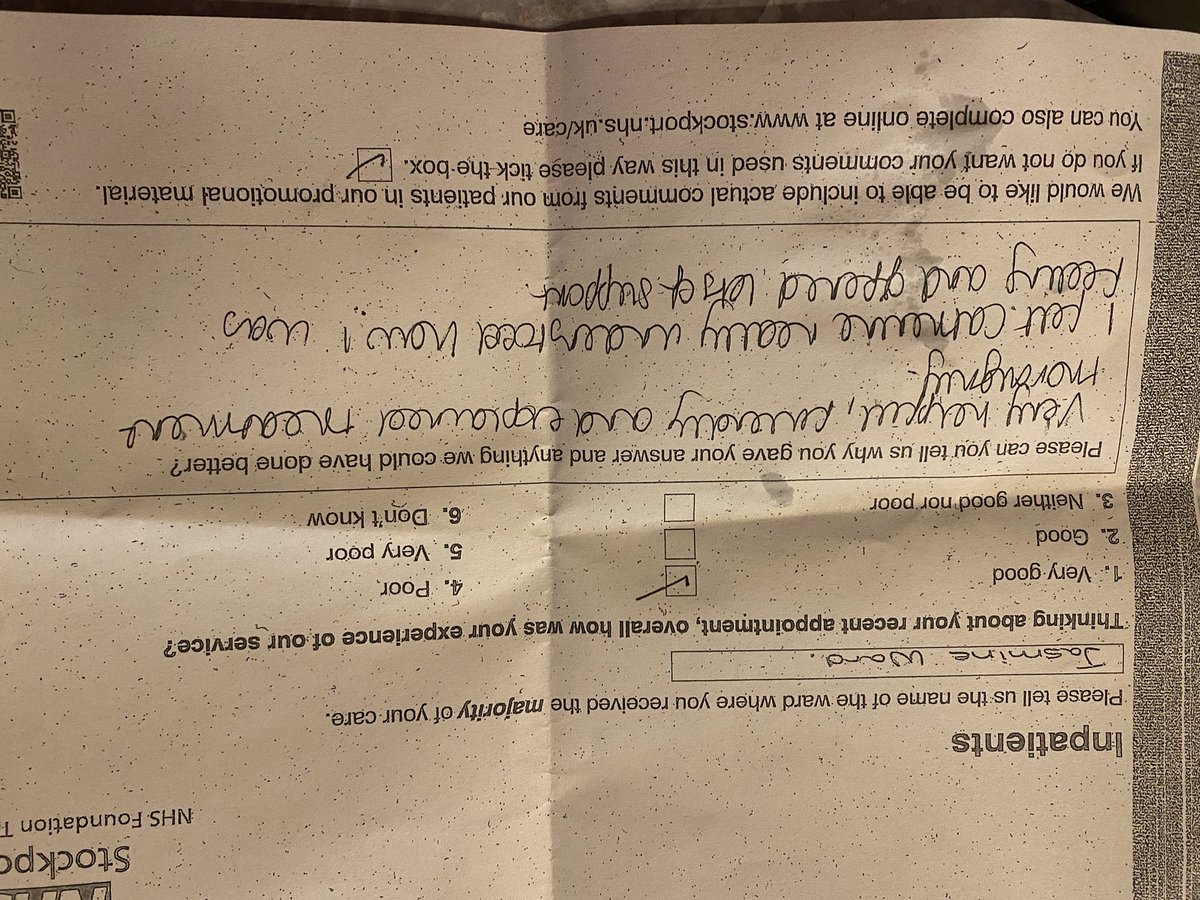 Stockpo
NHS Foundation T
Inpatients
Please tell us the name of the ward where you received the majority of your care.
Jasmine Ward.
Thinking about your recent appointment, overall how was your experience of our service?
1. Very good
2. Good
3. Neither good nor poor
4. Poor
5. Very poor
6. Don't know
Please can you tell us why you gave your answer and anything we could have done better?
Very helpful, friendly and explained treatment
thoroughly.
I felt Catherine really understood how I was
feeling and offered lots of support
We would like to be able to include actual comments from our patients in our promotional material.
If you do not want your comments used in this way please tick the box.
You can also complete online at www.stockport.nhs.uk/care